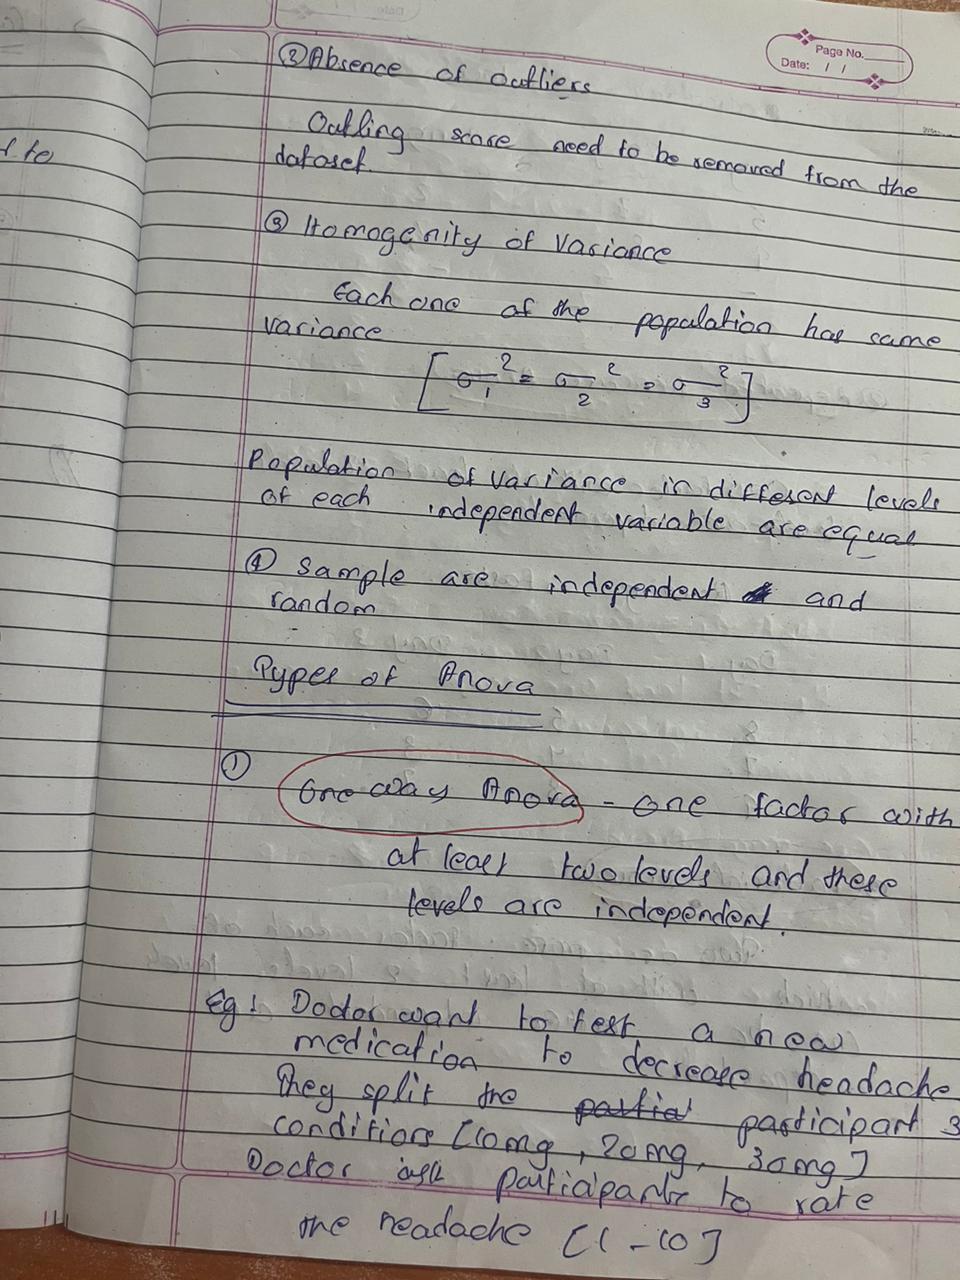 Page No.
Date: / /
② Absence of outliers
Outling score need to be removed from the
dataset.
③ Homogenity of Variance
Each one of the population has same
variance
[σ₁² = σ₂² = σ₃²]
Population of variance in different levels
of each independent variable are equal
④ Sample are independent and
random
Types of Anova
①
One way Anova - one factor with
at least two levels and these
levels are independent.
Eg: Doctor want to test a new
medication to decrease headache
They split the participant 3
conditions [10mg, 20mg, 30mg]
Doctor ask participants to rate
the headache [1-10]